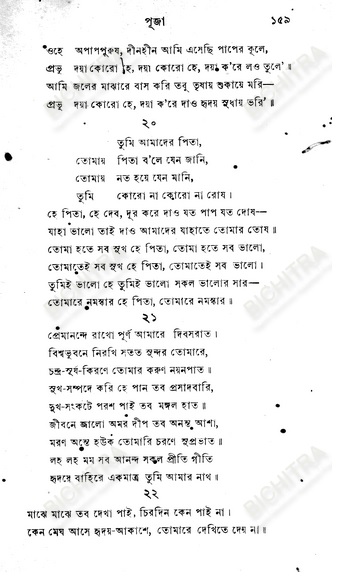 পূজা ১৫৯
ওহে অপাপপুরুষ, দীনহীন আমি এসেছি পাপের কূলে,
প্রভু দয়া কোরো হে, দয়া কোরো হে, দয়া ক'রে লও তুলে'॥
আমি জলের মাঝারে বাস করি তবু তৃষায় শুকায়ে মরি—
প্রভু দয়া কোরো হে, দয়া ক'রে দাও হৃদয় সুধায় ভরি'॥
২০
তুমি আমাদের পিতা,
তোমায় পিতা ব'লে যেন জানি,
তোমায় নত হয়ে যেন মানি,
তুমি কোরো না কোরো না রোষ।
হে পিতা, হে দেব, দূর করে দাও যত পাপ যত দোষ—
যাহা ভালো তাই দাও আমাদের যাহাতে তোমার তোষ॥
তোমা হতে সব সুখ হে পিতা, তোমা হতে সব ভালো,
তোমাতেই সব সুখ হে পিতা, তোমাতেই সব ভালো।
তুমিই ভালো হে তুমিই ভালো সকল ভালোর সার—
তোমারে নমস্কার হে পিতা, তোমারে নমস্কার॥
২১
প্রেমানন্দে রাখো পূর্ণ আমারে দিবসরাত।
বিশ্বভুবনে নিরখি সতত সুন্দর তোমারে,
চন্দ্র-সূর্য-কিরণে তোমার করুণ নয়নপাত॥
সুখ-সম্পদে করি হে পান তব প্রসাদবারি,
দুখ-সংকটে পরশ পাই তব মঙ্গল হাত॥
জীবনে জ্বালো অমর দীপ তব অনন্ত আশা,
মরণ অন্তে হউক তোমারি চরণে সুপ্রভাত॥
লহ লহ মম সব আনন্দ সকল প্রীতি গীতি
হৃদয়ে বাহিরে একমাত্র তুমি আমার নাথ॥
২২
মাঝে মাঝে তব দেখা পাই, চিরদিন কেন পাই না।
কেন মেঘ আসে হৃদয়-আকাশে, তোমারে দেখিতে দেয় না॥
BICHITRA